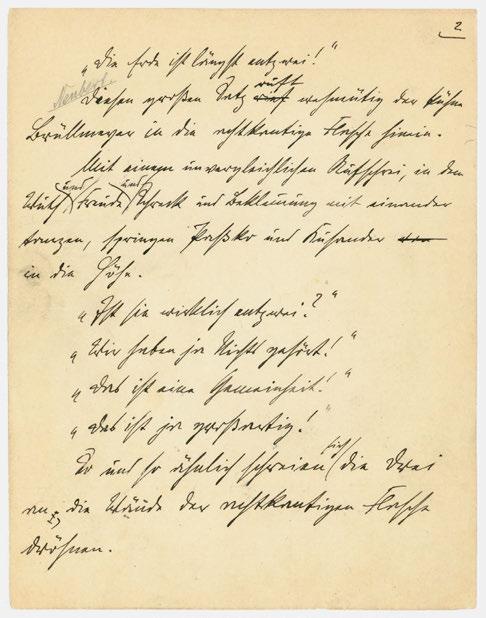 2
„Die Erde ist längst entzwei!“
ruft
Diesen großen Satz rief wehmütig der kühne
Brüllmeyer in die achtkantige Flasche hinein.
Mit einem unvergleichlichen Aufschrei, in dem
und und
Wuth, Freude, Schreck und Beklemmung mit einander
tanzen, springen Passko und Kusander
in die Höhe.
„Ist sie wirklich entzwei?“
„Wir haben ja Nichts gehört!“
„Das ist eine Gemeinheit!“
„Das ist ja großartig!“
sich
So und so ähnlich schreien die Drei
an, die Wände der achtkantigen Flasche
dröhnen.